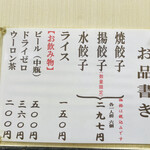 お品書き
焼餃子
揚餃子
水餃子
二九七円
ライス
一五〇円
【お飲み物】
ビール(中瓶)
五〇〇円
ドライゼロ
三六〇円
ウーロン茶
二〇〇円